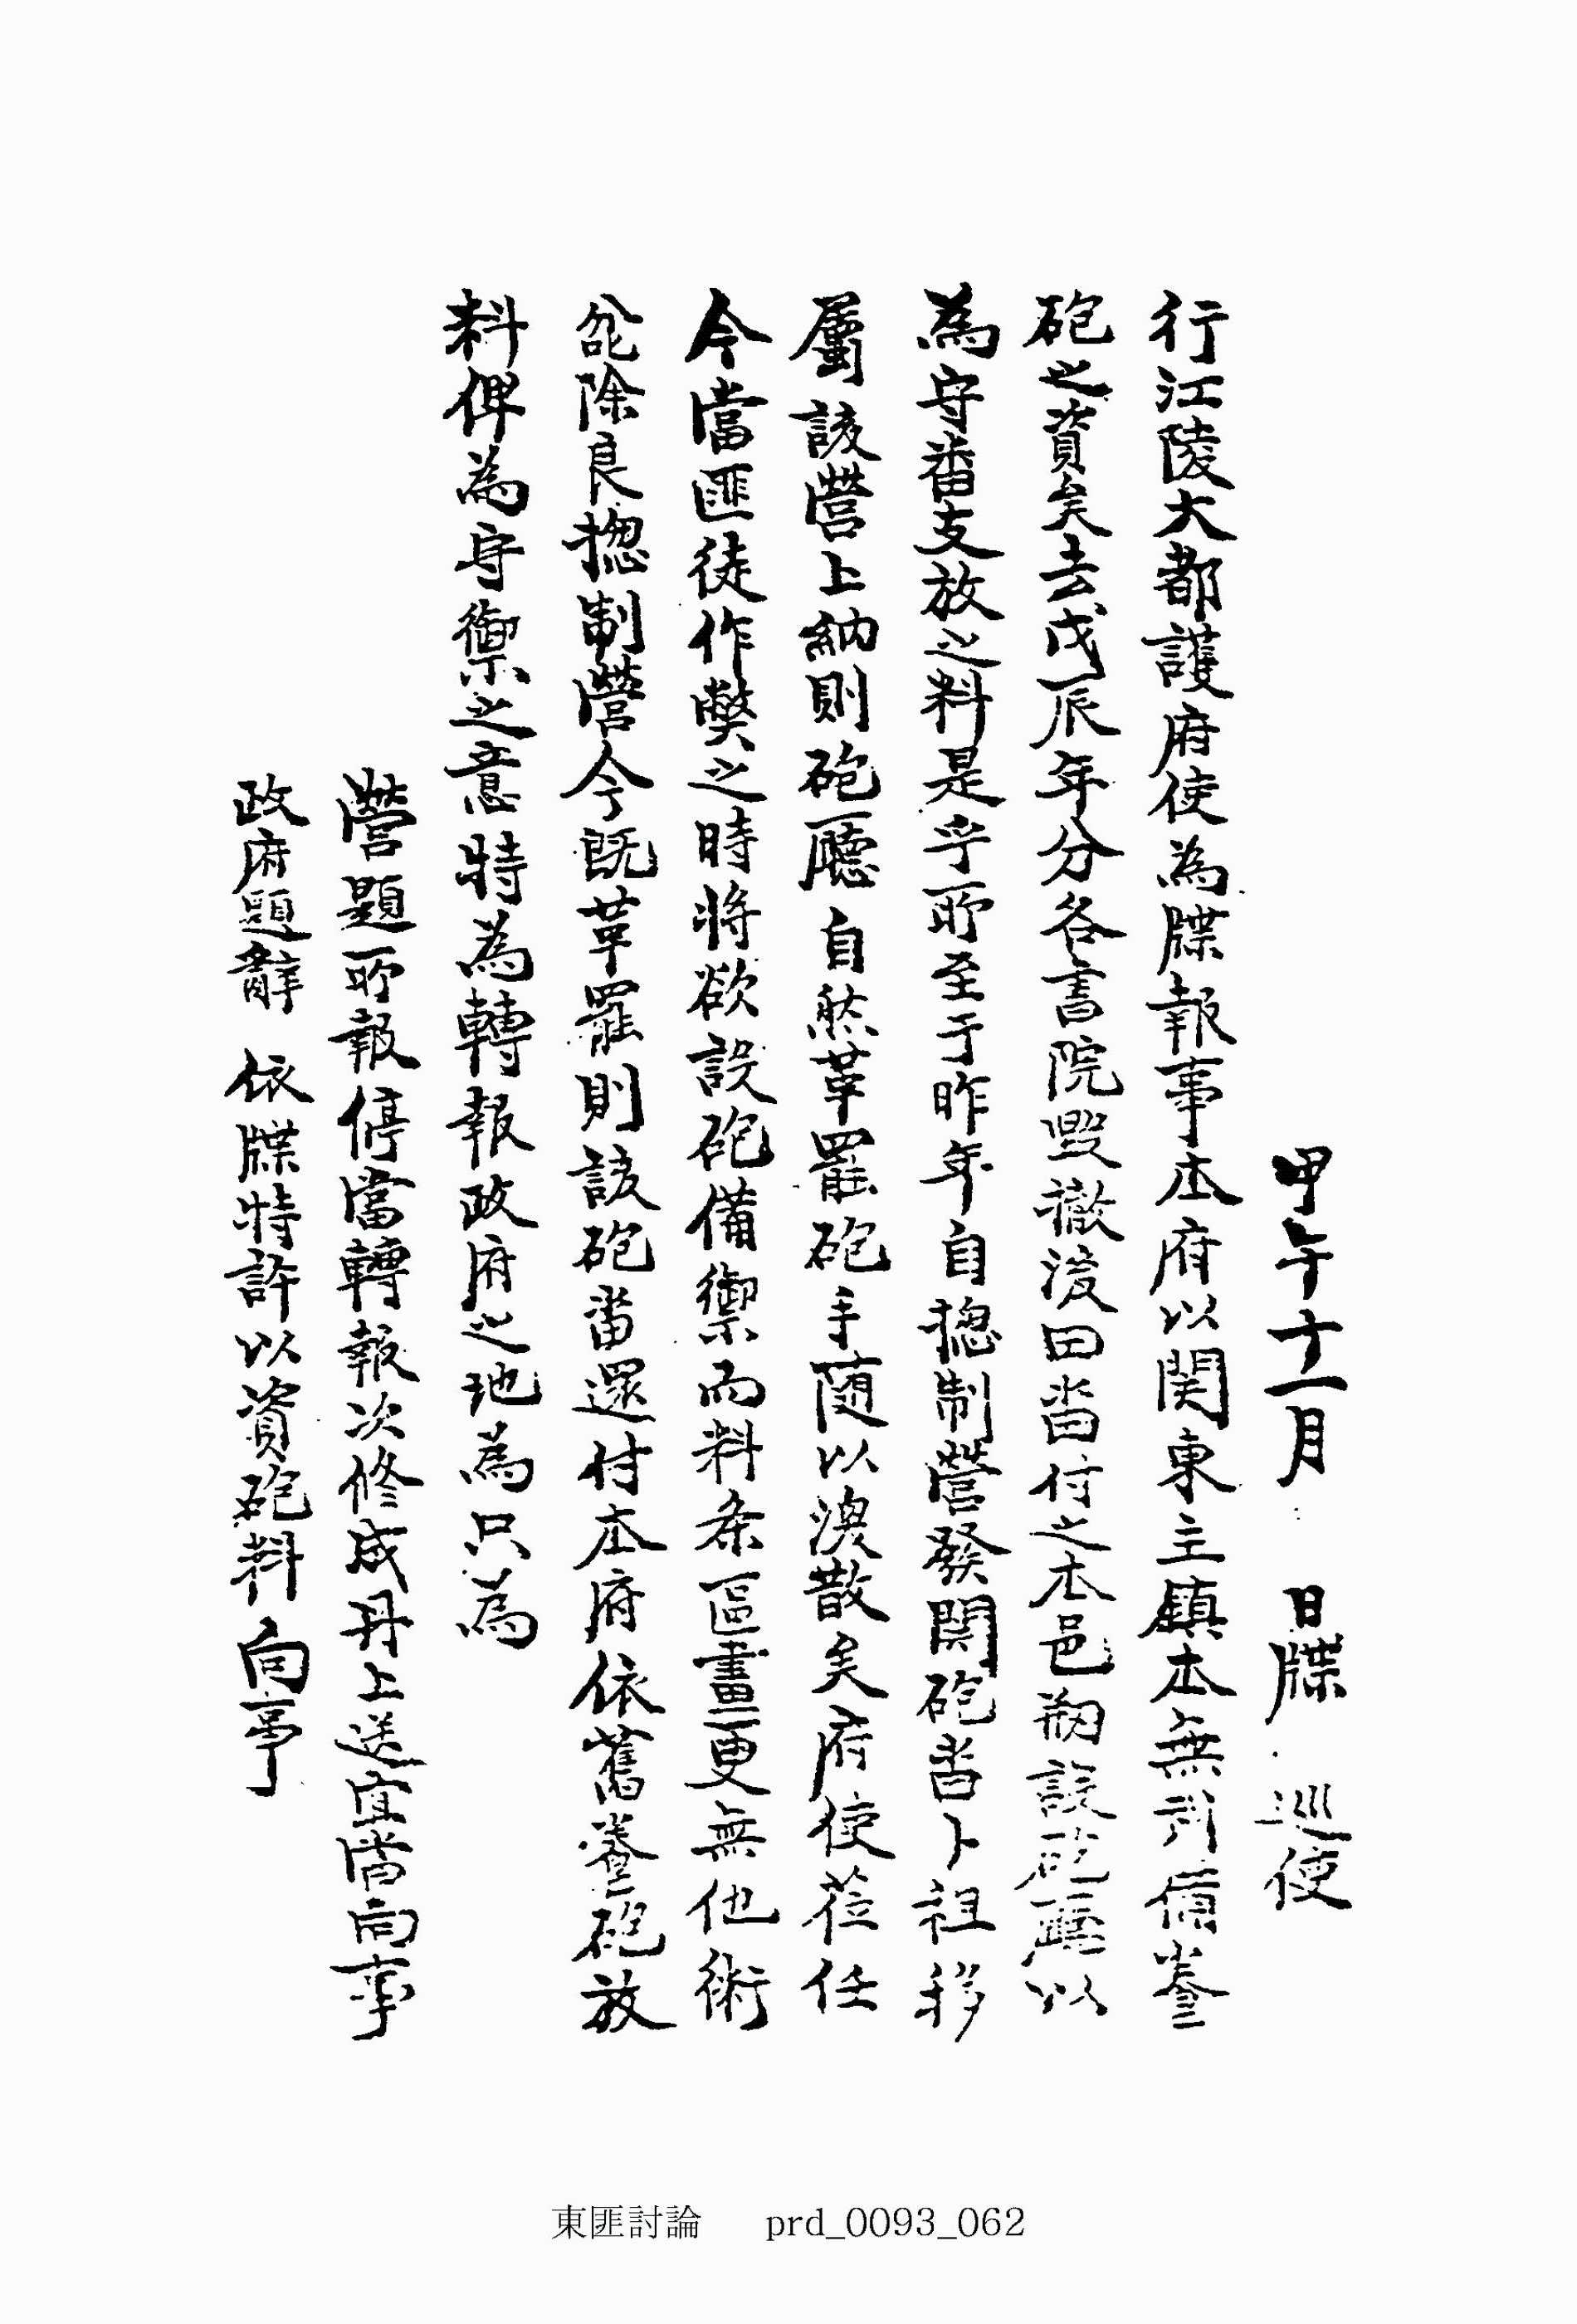 甲午十一月 日牒 巡使
行江陵大都護府使為牒報事本府以関東主鎮本無別備養
砲之資矣去戊辰年分各書院毀撤後田畓付之本邑刱設砲廳以
為守番支放之料是乎所至于昨年自揔制營發関砲畓卜祖移
屬該營上納則砲廳自然革罷砲手随以渙散矣府使莅任
今當匪徒作弊之時将欲設砲備禦而料条區畫更無他術
除良揔制營今既革罷則該砲畓還付本府依舊養砲放
料俾為守禦之意特為轉報政府之地為只為
營題所報停當轉報次修成冊上送宜當向事
政府題辭 依牒特許以資砲料向事
東匪討論 prd_0093_062